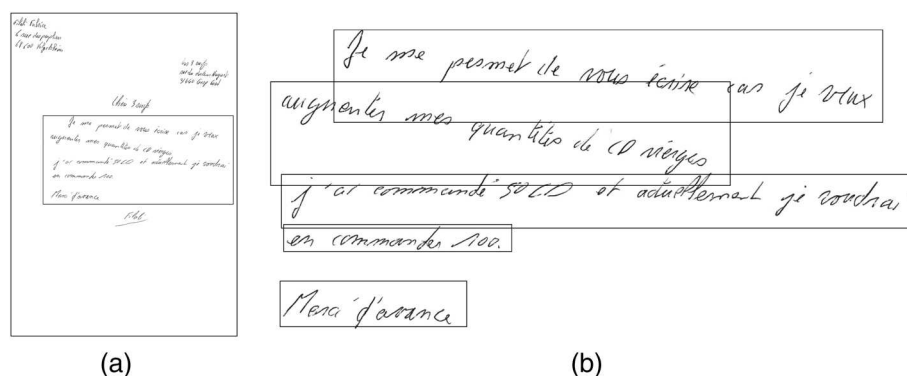 Cher 3 suif
Je me permet de vous écrire car je veux
augmenter mes quantités de CD vierges
j'ai commandé 50 CD et actuellement je voudrai
en commander 100.
Merci d'avance
(a)
Je me permet de vous écrire car je veux
augmenter mes quantités de CD vierges
j'ai commandé 50 CD et actuellement je voudrai
en commander 100.
Merci d'avance
(b)